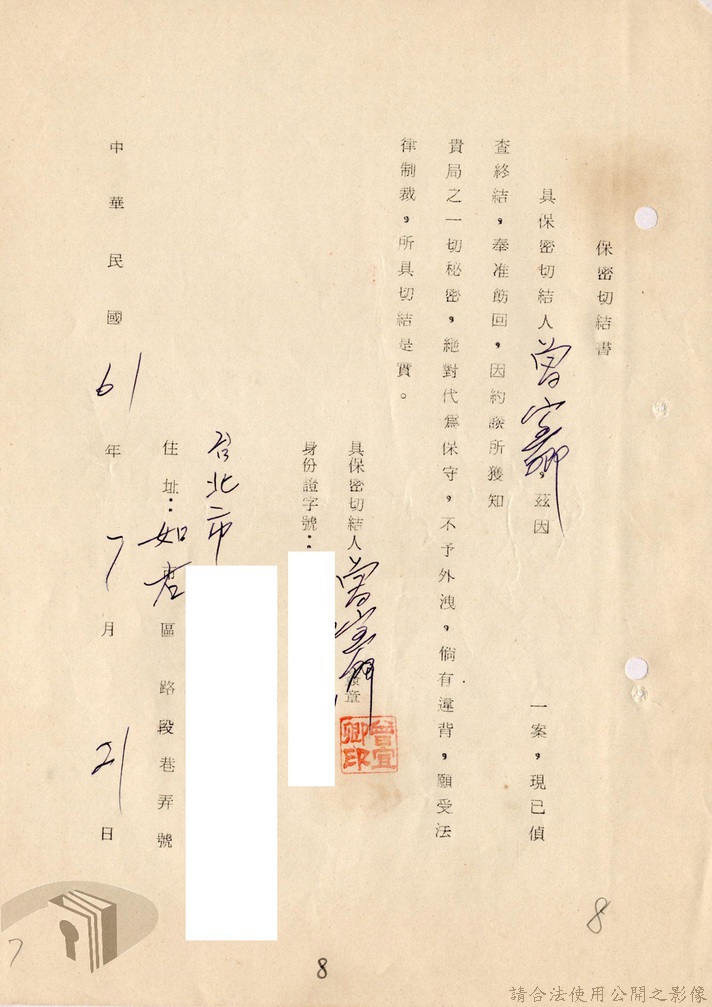 保密切結書
具保密切結人曾宜卿,茲因 一案,現已偵
查終結,奉准飭回,因約談所獲知
貴局之一切秘密,絕對代為保守,不予外洩,倘有違背,願受法
律制裁,所具切結是實。
具保密切結人曾宜卿簽章
曾宜卿印
身份證字號:
台北市
住址:如杏區 路段巷弄號
中華民國61年7月21日
8
8
7
請合法使用公開之影像